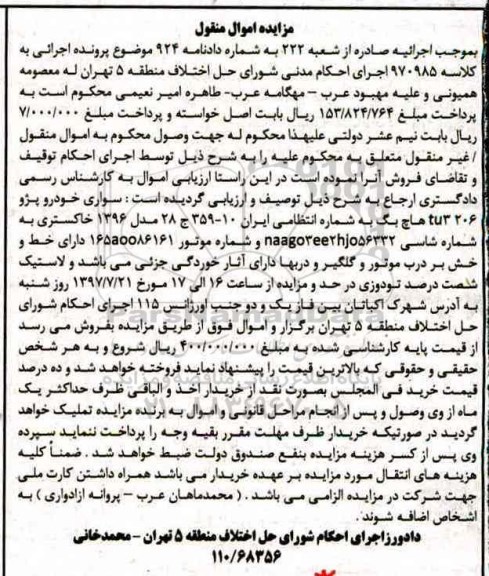 مزایده اموال منقول
بموجب اجرائیه صادره از شعبه ۲۲۲ به شماره دادنامه ۹۲۴ موضوع پرونده اجرائی به
کلاسه ۹۷۰۹۸۵ اجرای احکام مدنی شورای حل اختلاف منطقه ۵ تهران له معصومه
همیونی و علیه مهبود عرب – مهگامه عرب- طاهره امیر نعیمی محکوم است به
پرداخت مبلغ ۱۵۳/۸۲۴/۷۶۴ ریال بابت اصل خواسته و پرداخت مبلغ ۷/۰۰۰/۰۰۰
ریال بابت نیم عشر دولتی علیهذا محکوم له جهت وصول محکوم به اموال منقول
/ غیر منقول متعلق به محکوم علیه را به شرح ذیل توسط اجرای احکام توقیف
و تقاضای فروش آنرا نموده است در این راستا ارزیابی اموال به کارشناس رسمی
دادگستری ارجاع به شرح ذیل توصیف و ارزیابی گردیده است : سواری خودرو پژو
۲۰۶ tu۳ هاچ بگ به شماره انتظامی ایران ۱۰-۳۵۹ ج ۲۸ مدل ۱۳۹۶ خاکستری به
شماره شاسی naag۰۳ee۲hj۰۵۶۳۳۲ و شماره موتور ۱۶۵a۰۰۸۶۱۶۱ دارای خط و
خش بر درب موتور و گلگیر و دربها دارای آثار خوردگی جزئی می باشد و لاستیک
شصت درصد تودوزی در حد و مزایده از ساعت ۱۶ الی ۱۷ مورخ ۱۳۹۷/۷/۲۱ روز شنبه
به آدرس شهرک اکباتان بین فاز یک و دو جنب اورژانس ۱۱۵ اجرای احکام شورای
حل اختلاف منطقه ۵ تهران برگزار و اموال فوق از طریق مزایده بفروش می رسد
از قیمت پایه کارشناسی شده به مبلغ ۴۰۰/۰۰۰/۰۰۰ ریال شروع و به هر شخص
حقیقی و حقوقی که بالاترین قیمت را پیشنهاد نماید فروخته خواهد شد و ده درصد
قیمت خرید فی المجلس بصورت نقد از خریدار اخذ و الباقی ظرف حداکثر یک
ماه از وی وصول و پس از انجام مراحل قانونی و اموال به برنده مزایده تملیک خواهد
گردید در صورتیکه خریدار ظرف مهلت مقرر بقیه وجه را پرداخت ننماید سپرده
وی پس از کسر هزینه مزایده بنفع صندوق دولت ضبط خواهد شد . ضمناً کلیه
هزینه های انتقال مورد مزایده بر عهده خریدار می باشد همراه داشتن کارت ملی
جهت شرکت در مزایده الزامی می باشد . ( محمدماهان عرب – پروانه ازادواری ) به
اشخاص اضافه شوند.
دادورز اجرای احکام شورای حل اختلاف منطقه ۵ تهران – محمدخانی
۱۱۰/۶۸۳۵۶